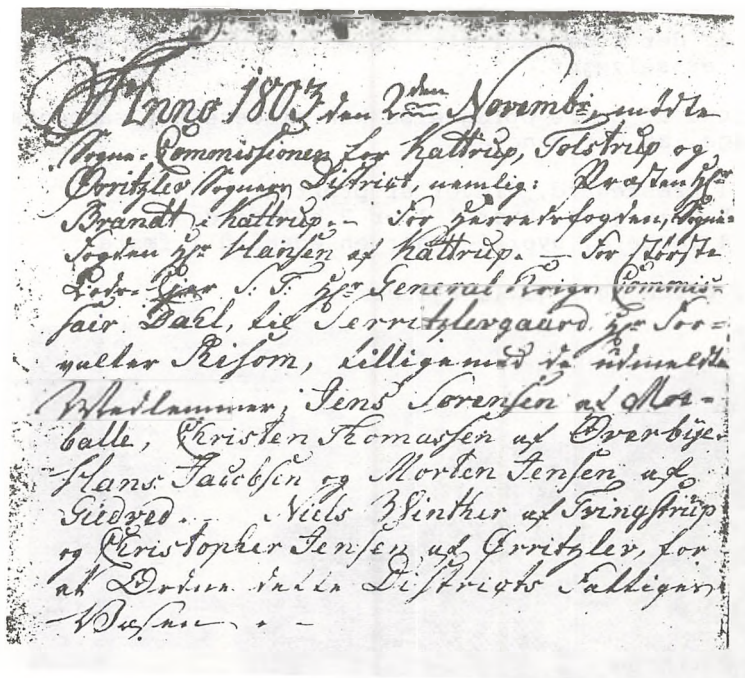 Anno 1803 den 2den Novembr, mødte
Sogne-Commissionen for Kattrup, Tolstrup og
Ørritzlev Sogners District, nemlig: Præsten Hr
Brandt i Kattrup. - For Herredsfogden, Sogne-
fogden Hr Hansen af Kattrup. - For største
Lods-Eyer S: T: Hr General Krigs Commis-
sair Dahl, til Serritzlevgaard Hr For-
valter Risom, tilligemed de udmeldte
Medlemmer, Jens Sørensen af Moe-
balle, Christen Thomassen af Overbye.
Hans Jacobsen og Morten Jensen af
Giedved. Niels Winther af Tvingstrup
og Christopher Jensen af Ørritzlev, for
at Ordne dette Districts Fattiges
Væsen. -